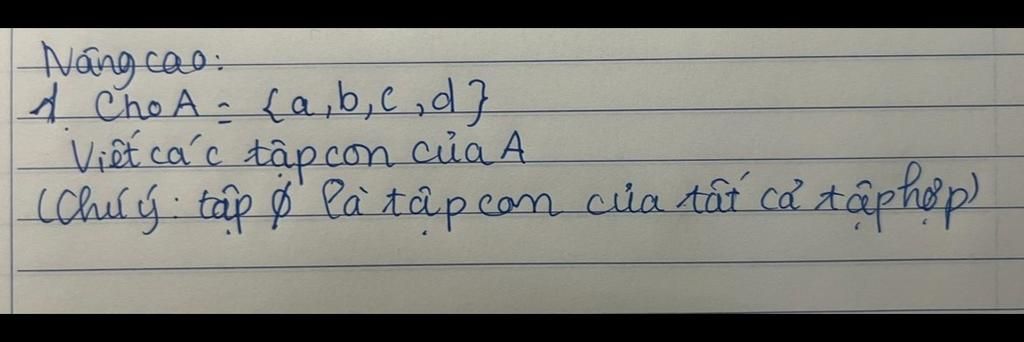 Nâng cao:
1. Cho A = {a, b, c, d}
Viết các tập con của A
(Chú ý: tập ∅ là tập con của tất cả tập hợp)